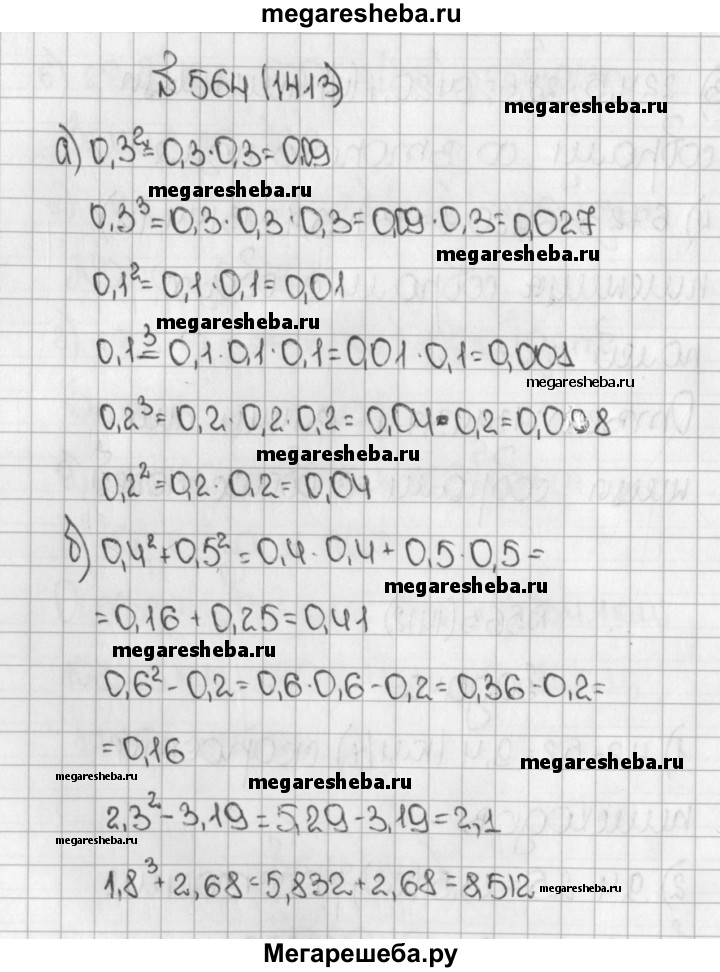 megaresheba.ru
№ 564 (1413)
megaresheba.ru
а) 0,3² = 0,3 · 0,3 = 0,09
megaresheba.ru
0,3³ = 0,3 · 0,3 · 0,3 = 0,09 · 0,3 = 0,027
megaresheba.ru
0,1² = 0,1 · 0,1 = 0,01
megaresheba.ru
0,1³ = 0,1 · 0,1 · 0,1 = 0,01 · 0,1 = 0,001
megaresheba.ru
0,2³ = 0,2 · 0,2 · 0,2 = 0,04 · 0,2 = 0,008
megaresheba.ru
0,2² = 0,2 · 0,2 = 0,04
б) 0,4² + 0,5² = 0,4 · 0,4 + 0,5 · 0,5 =
megaresheba.ru
= 0,16 + 0,25 = 0,41
megaresheba.ru
0,6² - 0,2 = 0,6 · 0,6 - 0,2 = 0,36 - 0,2 =
= 0,16
megaresheba.ru
megaresheba.ru
megaresheba.ru
2,3² - 3,19 = 5,29 - 3,19 = 2,1
megaresheba.ru
1,8³ + 2,68 = 5,832 + 2,68 = 8,512
megaresheba.ru
Мегарешеба.ру